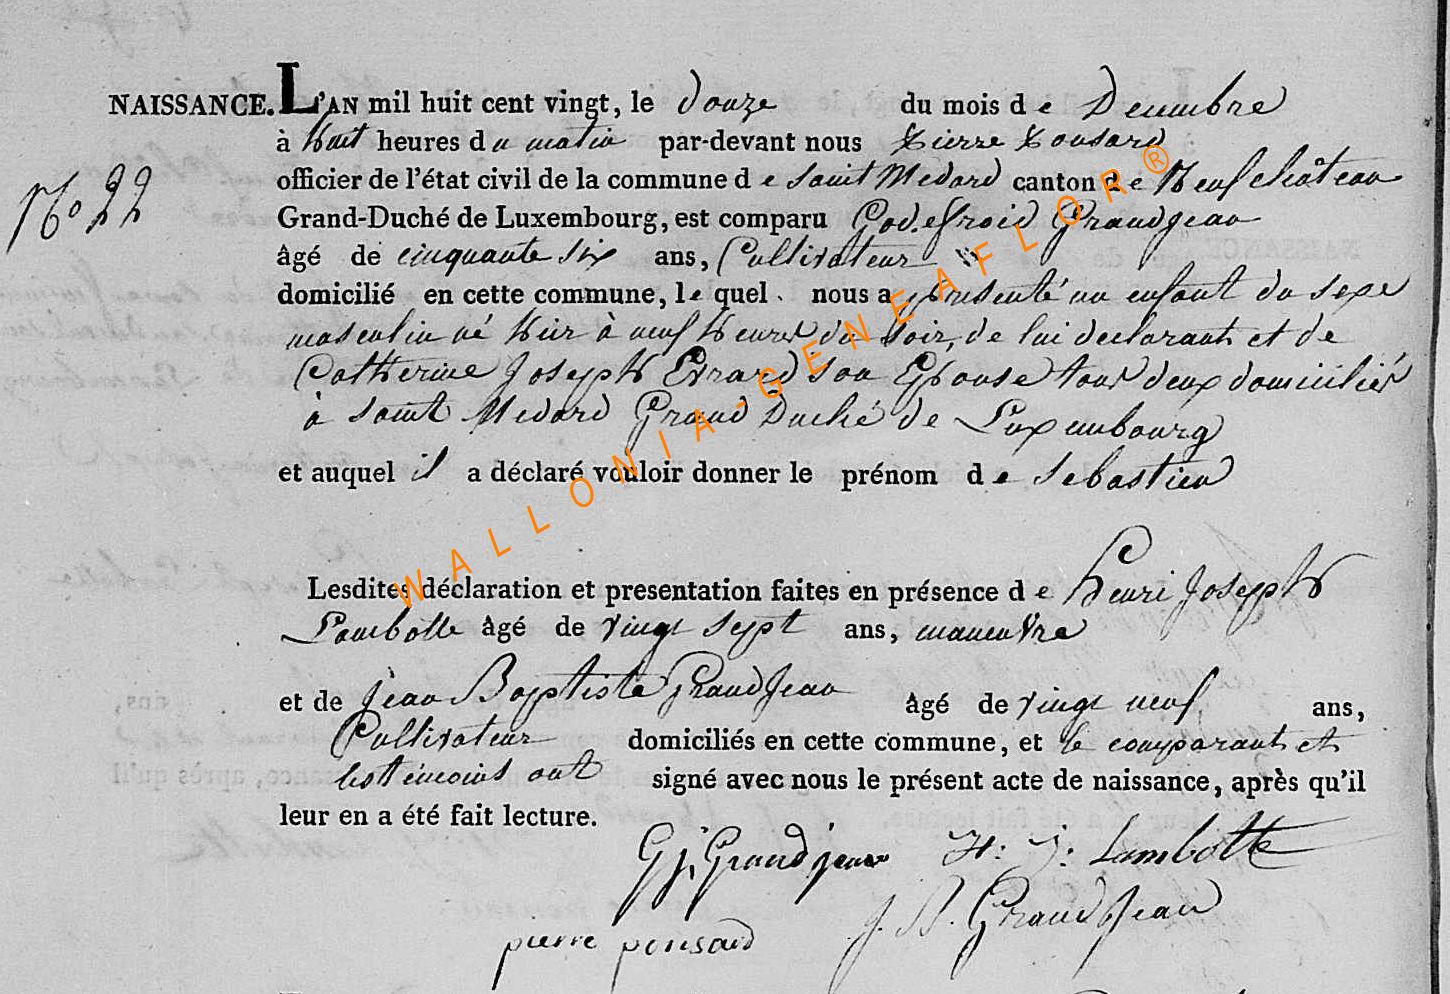 NAISSANCE. L'AN mil huit cent vingt, le douze du mois de Decembre
à huit heures du matin par-devant nous Pierre Ponsard
officier de l'état civil de la commune de Saint Medard canton de Neufchâteau
N.o 22
Grand-Duché de Luxembourg, est comparu Godefroid Grandjean
âgé de cinquante six ans, Cultivateur
domicilié en cette commune, le quel nous a présenté un enfant du sexe
masculin né hier à neuf heures du soir, de lui declarant et de
Catherine Joseph Evrard son Epouse tous deux domiciliés
à Saint Medard Grand Duché de Luxembourg
et auquel il a déclaré vouloir donner le prénom de Sebastien
Lesdites déclaration et presentation faites en présence de Henri Joseph
Lambotte âgé de vingt sept ans, maneuvre
et de Jean Baptiste Grandjean âgé de vingt neuf ans,
Cultivateur domiciliés en cette commune, et le comparant et
les témoins ont signé avec nous le présent acte de naissance, après qu'il
leur en a été fait lecture.
G j. Grandjean H: J: Lambotte
pierre ponsard J. B. GrandJean
WALLONIA-GENEAFLOR®